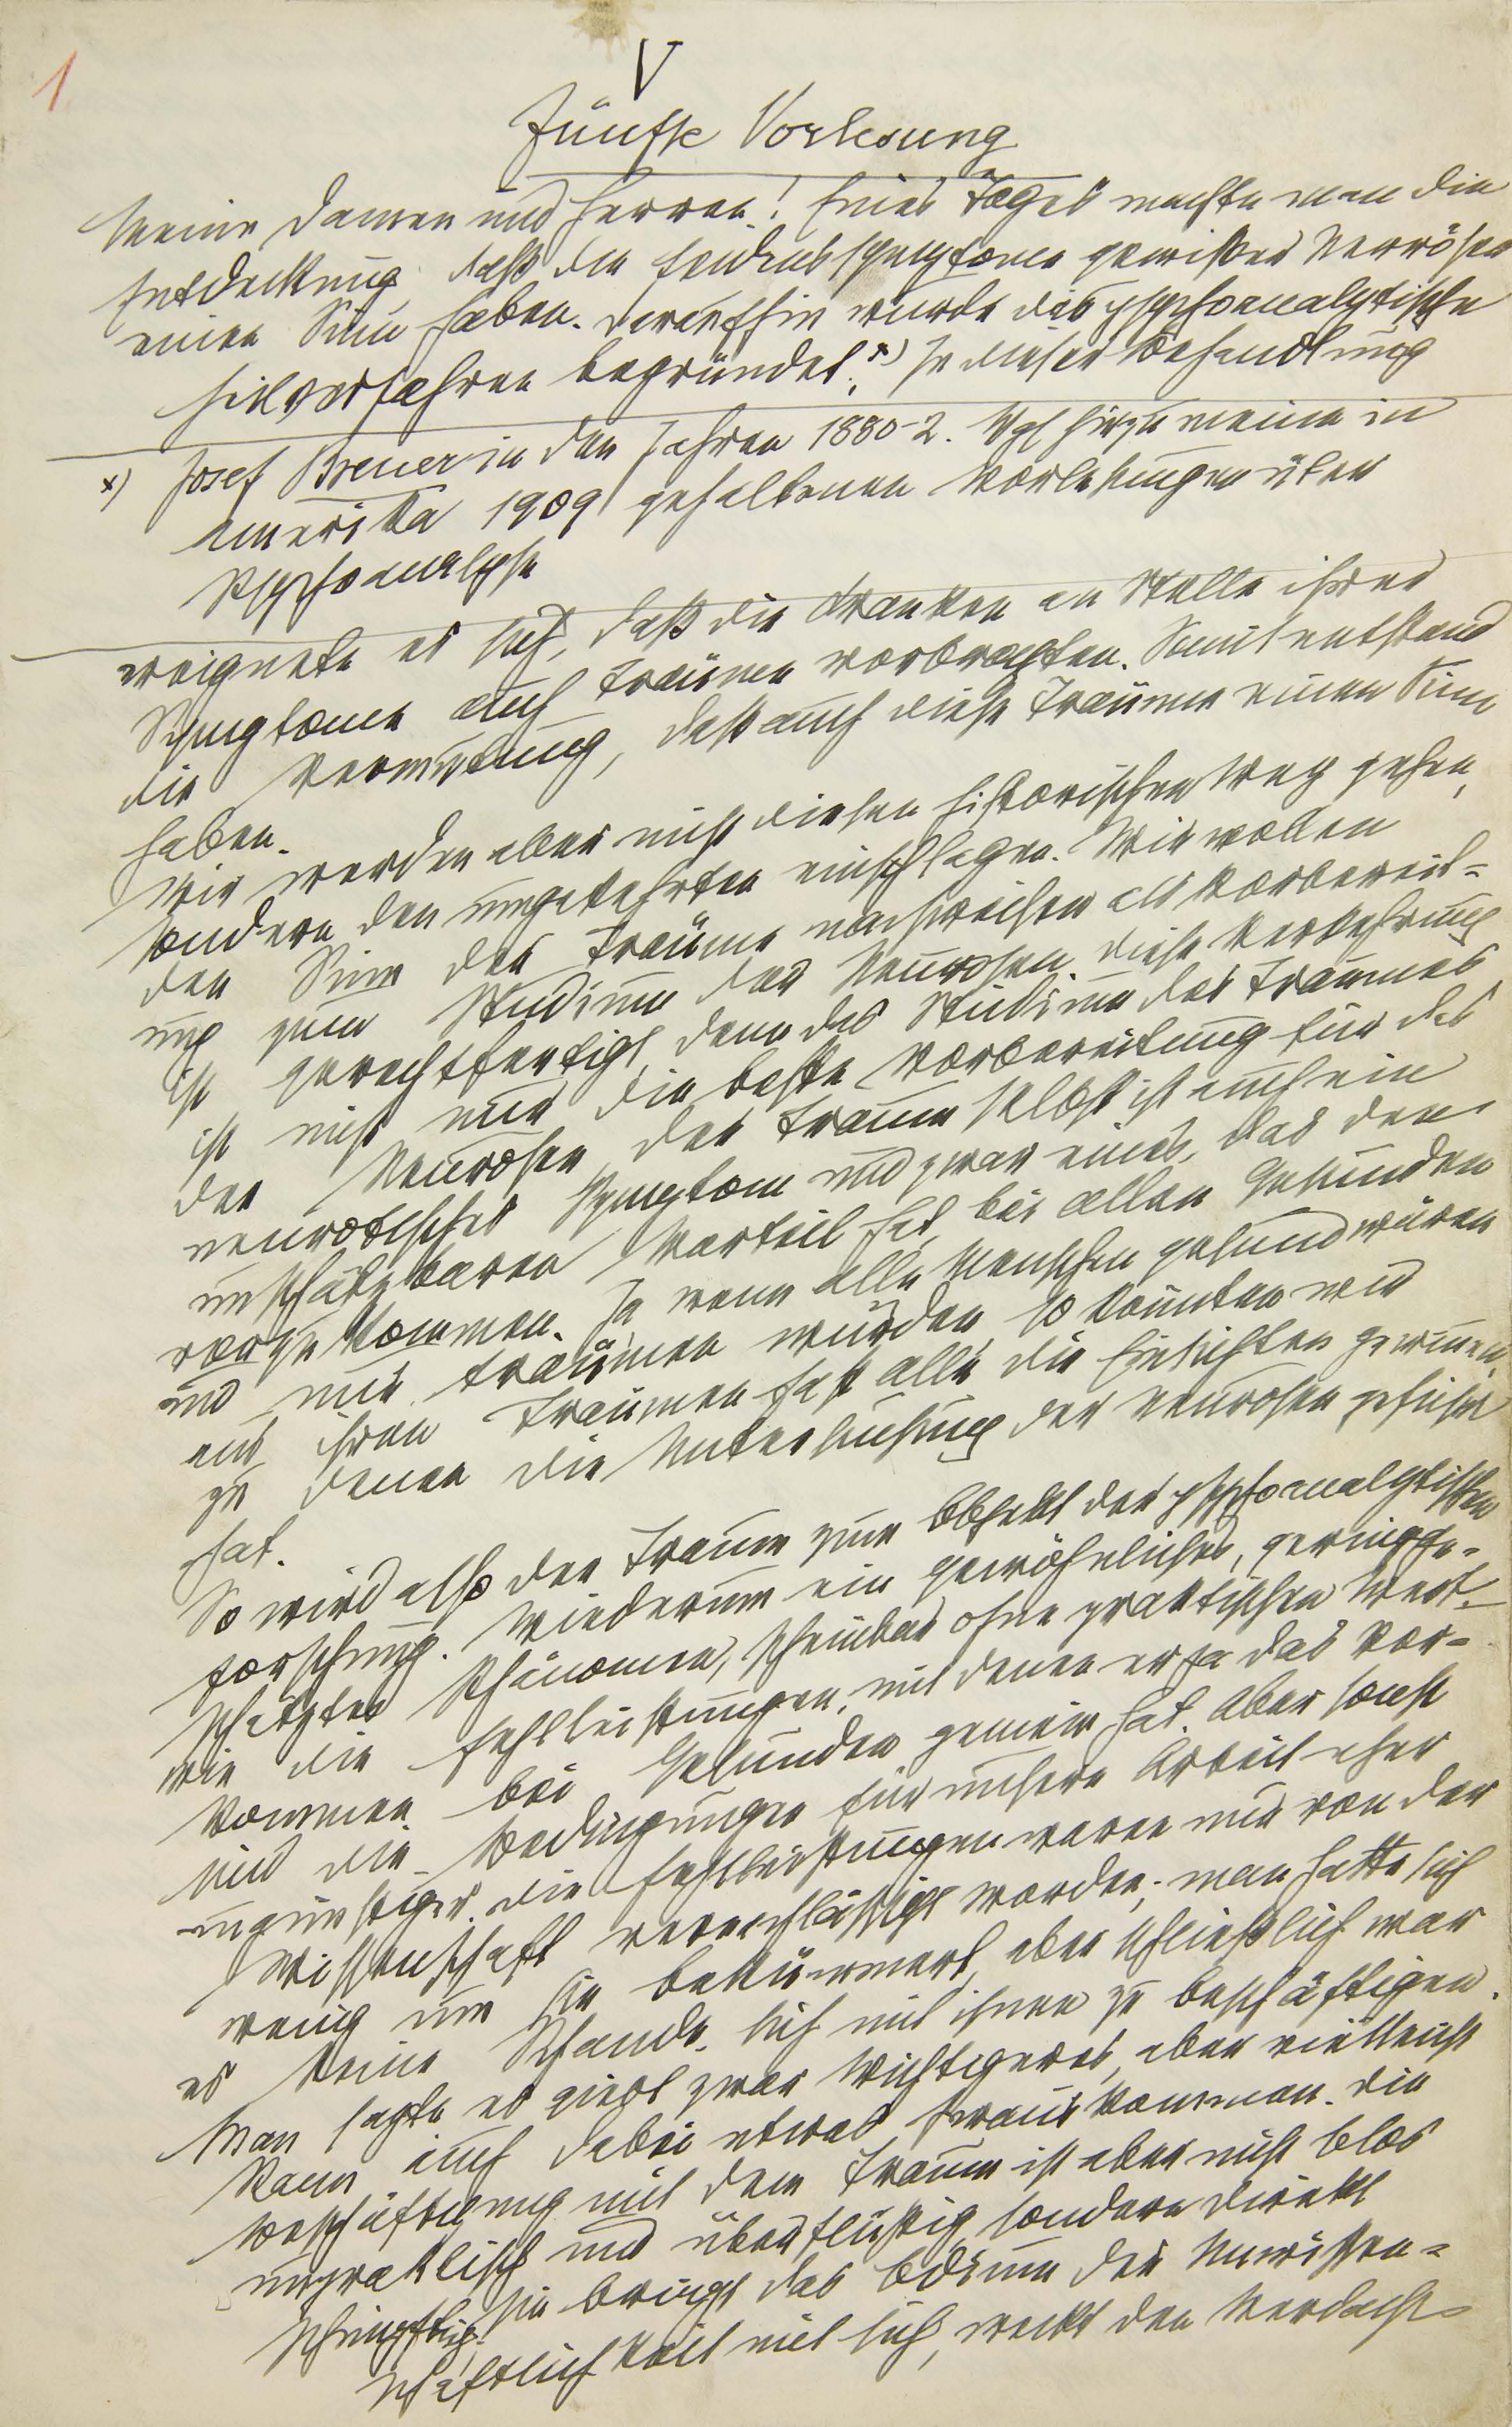 1
V
Fünfte Vorlesung
Meine Damen und Herren! Eines Tages machte man die
Entdeckung, daß die Leidenssymptome gewisser Nervösen
einen Sinn haben. Daraufhin wurde das psychoanalytische
Heilverfahren begründet. x) In dieser Behandlung
x) Josef Breuer in den Jahren 1880-2. Vgl hiezu meine in
Amerika 1909 gehaltenen Vorlesungen über
Psychoanalyse
ereignete es sich, daß die Kranken an Stelle ihrer
Symptome auch Träume vorbrachten. Somit entstand
die Vermutung, daß auch diese Träume einen Sinn
haben.
Wir werden aber nicht diesen historischen Weg gehen,
sondern den umgekehrten einschlagen. Wir wollen
den Sinn der Träume nachweisen als Vorbereit=
ung zum Studium der Neurosen. Diese Verkehrung
ist gerechtfertigt, denn das Studium des Traumes
ist nicht nur die beste Vorbereitung für das
der Neurosen, der Traum selbst ist auch ein
neurotisches Symptom und zwar eines, das den
unschätzbaren Vorteil hat, bei allen Gesunden
vorzukommen. Ja wenn alle Menschen gesund wären
und nur träumen würden, so könnten wir
aus ihren Träumen fast alle die Einsichten gewinnen,
zu denen die Untersuchung der Neurosen geführt
hat.
So wird also der Traum zum Objekt der psychoanalytischen
Forschung. Wiederum ein gewöhnliches, geringge=
schätztes Phänomen, scheinbar ohne praktischen Wert
wie die Fehlleistungen, mit denen er ja das Vor=
kommen bei Gesunden gemein hat. Aber sonst
sind die Bedingungen für unsere Arbeit eher
ungünstiger. Die Fehlleistungen waren nur von der
Wissenschaft vernachlässigt worden, man hatte sich
wenig um sie bekümmert, aber schließlich war
es keine Schande, sich mit ihnen zu beschäftigen.
Man sagte es giebt zwar Wichtigeres, aber vielleicht
kann auch dabei etwas herauskommen. Die
Beschäftigung mit dem Traum ist aber nicht blos
unpraktisch und überflüssig sondern direkt
schimpflich; sie bringt das Odium der Unwissen=
schaftlichkeit mit sich, weckt den Verdacht